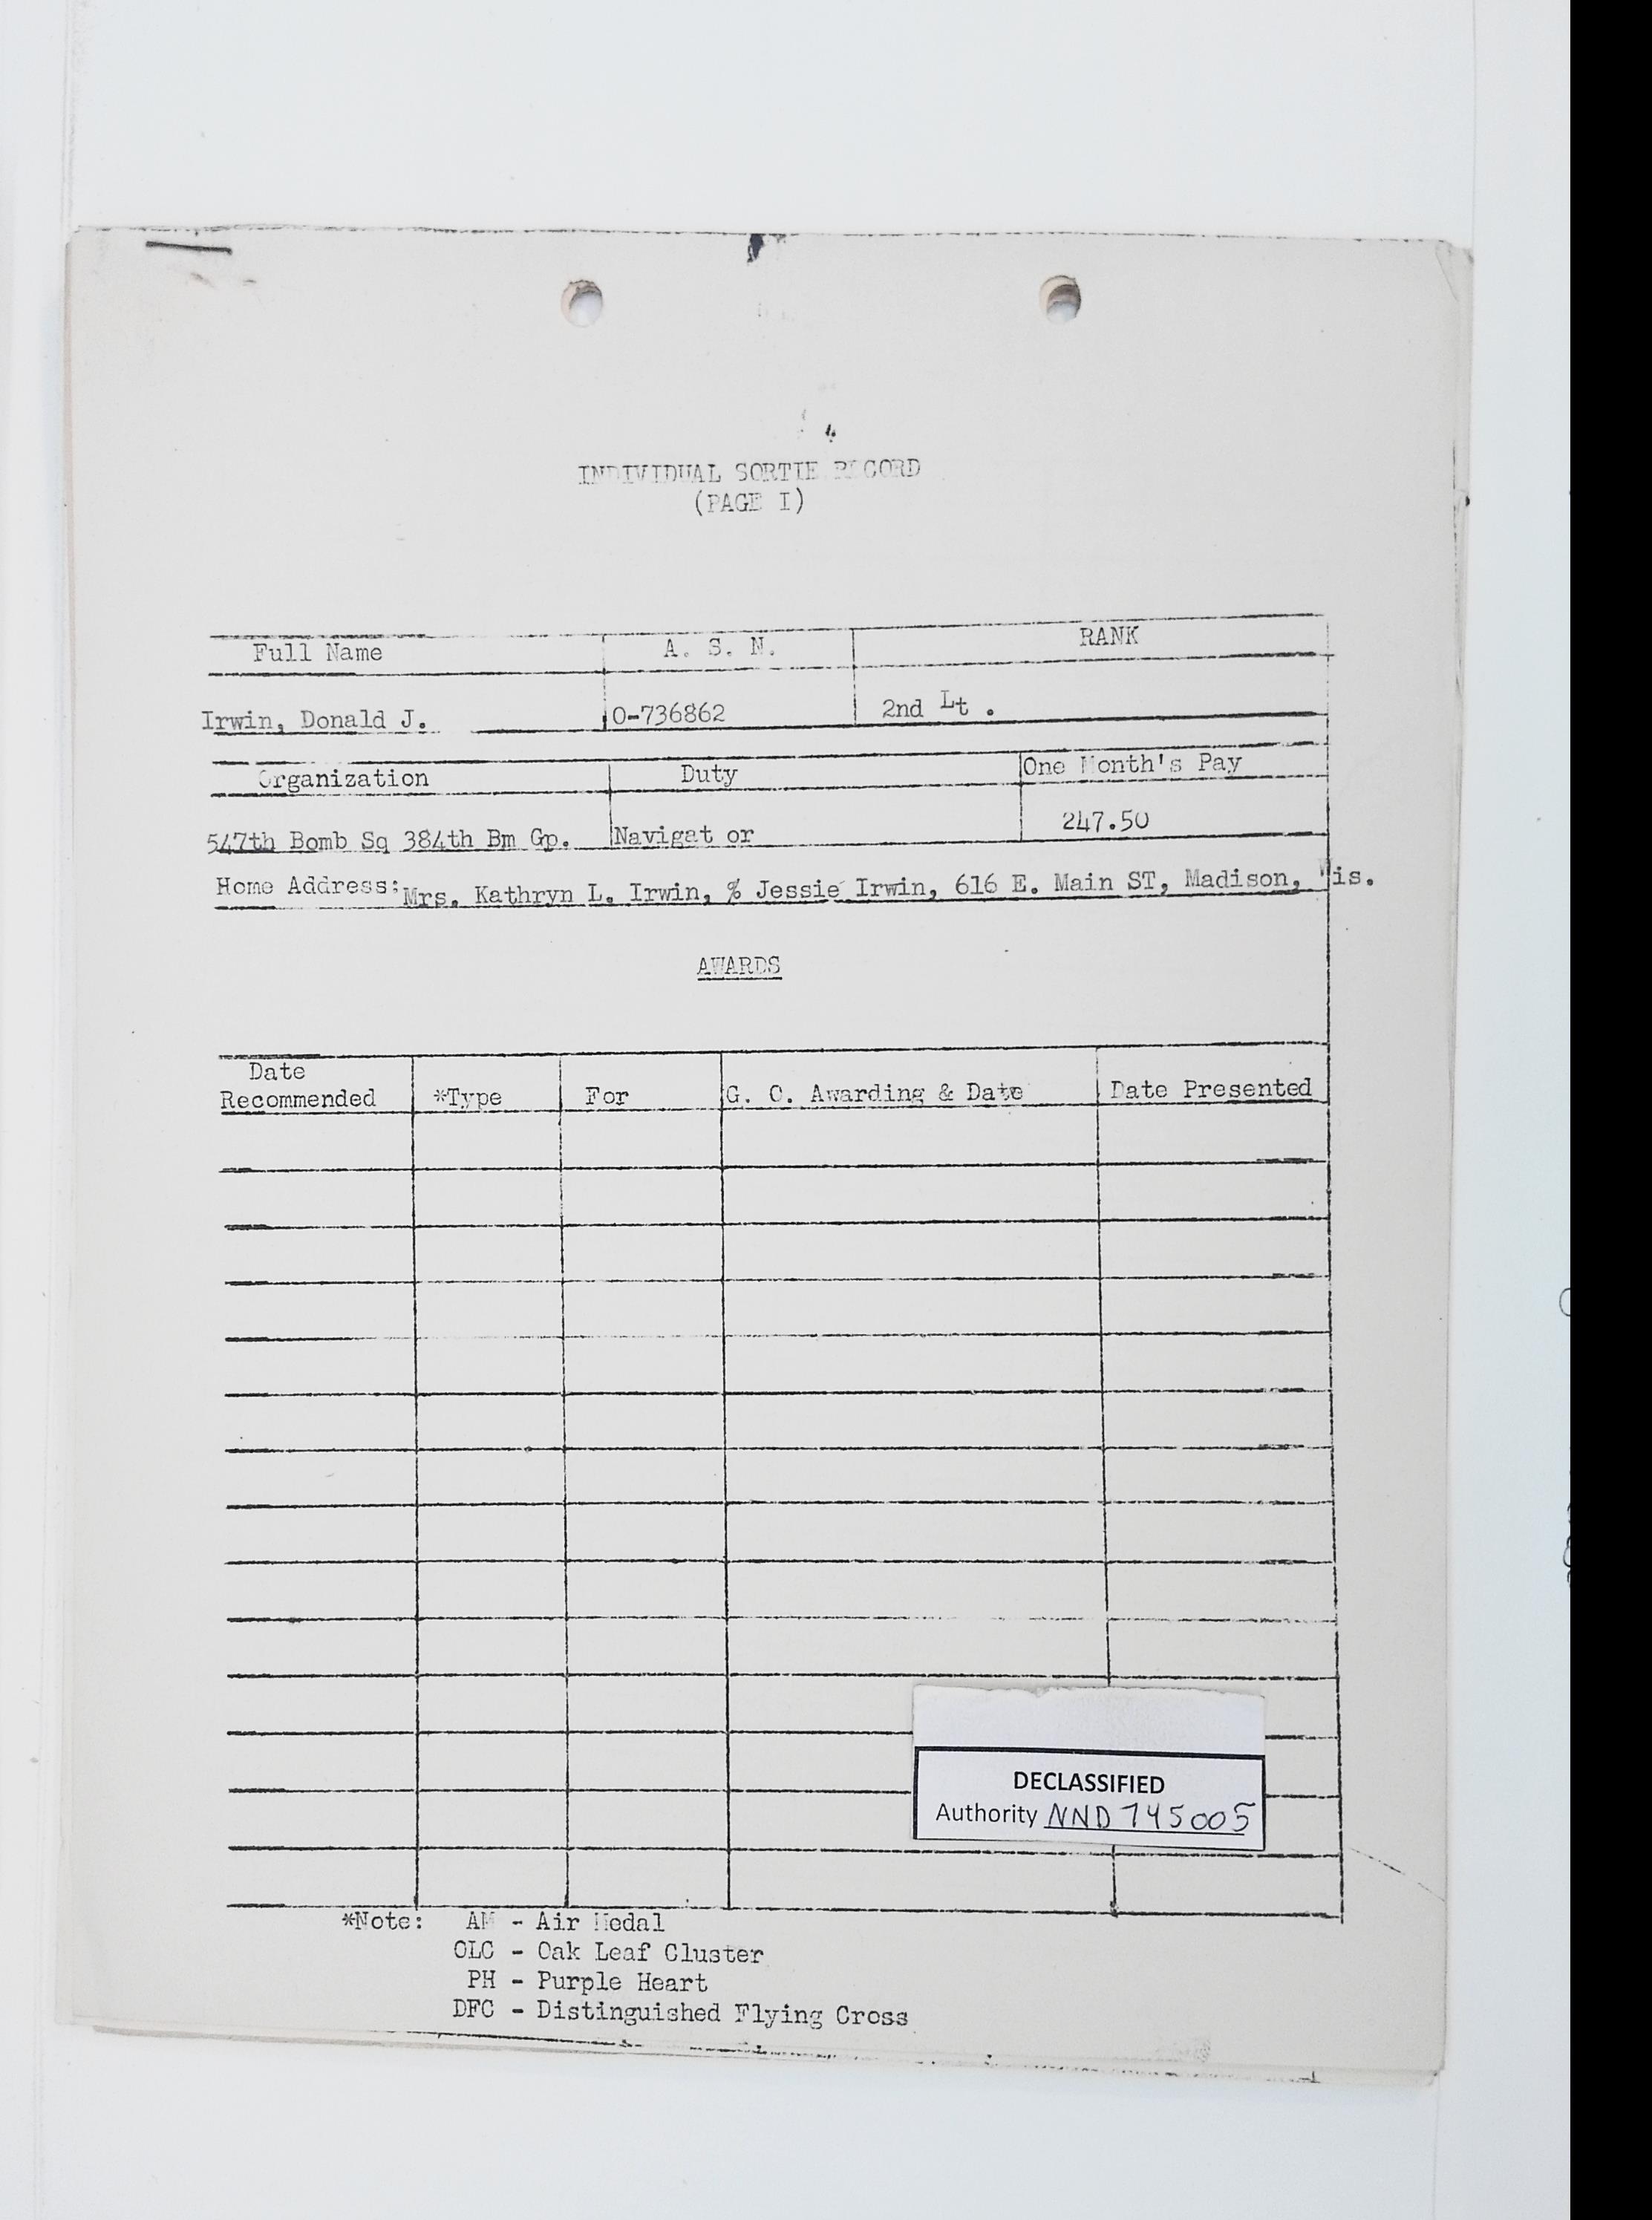 INDIVIDUAL SORTIE RECORD
(PAGE I)
Full Name A. S. N. RANK
Irwin, Donald J. O-736862 2nd Lt .
Organization Duty One Month's Pay
547th Bomb Sq 384th Bm Gp. Navigat or 247.50
Home Address: Mrs. Kathryn L. Irwin, % Jessie Irwin, 616 E. Main ST, Madison, Wis.
AWARDS
Date
Recommended *Type For G. O. Awarding & Date Date Presented
DECLASSIFIED
Authority NND 745005
*Note: AM - Air Medal
OLC - Oak Leaf Cluster
PH - Purple Heart
DFC - Distinguished Flying Cross